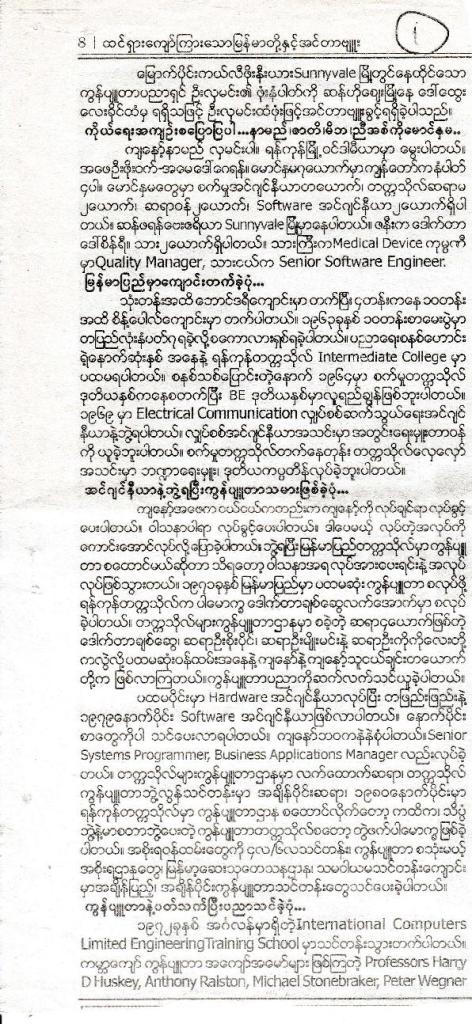 8 | ထင်ရှားကျော်ကြားသောမြန်မာတို့နှင့်အင်တာဗျူး
1
မြောက်ပိုင်းကယ်လီဖိုးနီးယားSunnyvale မြို့တွင်နေထိုင်သော
ကွန်ပျူတာပညာရှင် ဦးလှမင်း၏ ဖုံးနံပါတ်ကို ဆန်ဟိုဇေးမြို့နေ ဒေါ်ထွေး
လေးခိုင်ထံမှ ရရှိသဖြင့် ဦးလှမင်းထံဖုံးဖြင့်အင်တာဗျူးခွင့်ရရှိခဲ့ပါသည်။
ကိုယ်ရေးအကျဉ်းပြောပြပါ...နာမည်၊ဇာတိ၊မိဘ၊ညီအစ်ကိုမောင်နှမ..
ကျနော့်နာမည် လှမင်းပါ။ ရန်ကုန်မြို့ ဝင်ဒါမီယာမှာ မွေးပါတယ်။
အဖေဦးဖိုးဝက်-အမေဒေါ်ရေနှန်။ မောင်နှမ၇ယောက်မှာကျွန်တော်ကနံပါတ်
၄ပါ။ မောင်နှမတွေမှာ စက်မှုအင်ဂျင်နီယာတယောက်၊ တက္ကသိုလ်ဆရာမ
၂ယောက်၊ ဆရာဝန်၂ယောက်၊ Software အင်ဂျင်နီယာ၂ယောက်ရှိပါ
တယ်။ ဆန်ဖရန်ဗေးဧရိယာ Sunnyvale မြို့မှာနေပါတယ်။ ဇနီးက ဒေါက်တာ
ဒေါ်စိန်ရီ။ သား၂ယောက်ရှိပါတယ်။ သားကြီးကMedical Device ကုမ္ပဏီ
မှာQuality Manager, သားငယ်က Senior Software Engineer.
မြန်မာပြည်မှာကျောင်းတက်ခဲ့ပုံ...
သုံးတန်းအထိ ဘောင်ဒရီကျောင်းမှာ တက်ပြီး ၄တန်းကနေ ၁၀တန်း
အထိ စိန့်ပေါလ်ကျောင်းမှာ တက်ပါတယ်။ ၁၉၆၃ခုနှစ် ၁၀တန်းစာမေးပွဲမှာ
တပြည်လုံးနံပတ်၇ရခဲ့လို့စကောလားရှစ်ရခဲ့ပါတယ်။ပညာရေးစနစ်ဟောင်း
ရဲ့နောက်ဆုံးနှစ် အနေနဲ့ ရန်ကုန်တက္ကသိုလ် Intermediate College မှာ
ပထမရပါတယ်။ စနစ်သစ်ပြောင်းတဲ့နောက် ၁၉၆၄မှာ စက်မှုတက္ကသိုလ်
ဒုတိယနှစ်ကနေစတက်ပြီး BE ဒုတိယနှစ်မှာလူရည်ချွန်ဖြစ်ဖူးပါတယ်။
၁၉၆၉ မှာ Electrical Communication လျှပ်စစ်ဆက်သွယ်ရေးအင်ဂျင်
နီယာနဲ့ဘွဲ့ရပါတယ်။ လျှပ်စစ်အင်ဂျင်နီယာအသင်းမှာ အတွင်းရေးမှူးတာဝန်
ကို ယူခဲ့ဘူးပါတယ်။ စက်မှုတက္ကသိုလ်တက်နေတုန်း တက္ကသိုလ်လှေလှော်
အသင်းမှာ ဘဏ္ဍာရေးမှူး၊ ဒုတိယကပ္ပတိန်လုပ်ခဲ့ဘူးပါတယ်။
အင်ဂျင်နီယာနဲ့ဘွဲ့ရပြီးကွန်ပျူတာသမားဖြစ်ခဲ့ပုံ...
ကျနော့်အဖေကငယ်ငယ်ကတည်းကကျနော့်ကိုလုပ်ချင်ရာလုပ်ခွင့်
ပေးပါတယ်။ ဝါသနာပါရာ လုပ်ခွင့်ပေးပါတယ်။ ဒါပေမယ့် လုပ်တဲ့အလုပ်ကို
ကောင်းအောင်လုပ်လို့ပြောခဲ့ပါတယ်။ဘွဲ့ရပြီးမြန်မာပြည်တက္ကသိုလ်မှာကွန်ပျူ
တာ စထောင်မယ်ဆိုတာ သိရတော့ ဝါသနာအရ လုပ်အားပေးရင်းနဲ့ အလုပ်
လုပ်ဖြစ်သွားတယ်။ ၁၉၇၁ခုနှစ်မြန်မာပြည်မှာ ပထမဆုံးကွန်ပျူတာ စလုပ်ဖို့
ရန်ကုန်တက္ကသိုလ်က ပါမောက္ခ ဒေါက်တာချစ်ဆွေလက်အောက်မှာ စလုပ်
ခဲ့ပါတယ်။ တက္ကသိုလ်များကွန်ပျူတာဌာနမှာ စခဲ့တဲ့ ဆရာ၄ယောက်ဖြစ်တဲ့
ဒေါက်တာချစ်ဆွေ၊ ဆရာဦးစိုးပိုင်၊ ဆရာဦးမျိုးမင်းနဲ့ ဆရာဦးကိုကိုလေးတို့
ကလွဲလို့ပထမဆုံးဝန်ထမ်းအနေနဲ့ကျနော်နဲ့ကျနော့်သူငယ်ချင်းတယောက်
တို့က ဖြစ်လာကြတယ်။ကွန်ပျူတာပညာကိုဆက်လက်သင်ယူခဲ့ပါတယ်။
ပထမပိုင်းမှာ Hardware အင်ဂျင်နီယာလုပ်ပြီး တဖြည်းဖြည်းနဲ့
၁၉၇၉နောက်ပိုင်း Software အင်ဂျင်နီယာဖြစ်လာပါတယ်။ နောက်ပိုင်း
စာတွေကိုပါ သင်ပေးလာရပါတယ်။ ကျနော်ဘဝကနဲနဲစုံပါတယ်။Senior
Systems Programmer, Business Applications Manager လည်းလုပ်ခဲ့
တယ်။ တက္ကသိုလ်များကွန်ပျူတာဌာနမှာ လက်ထောက်ဆရာ၊ တက္ကသိုလ်
ကွန်ပျူတာဘွဲ့လွန်သင်တန်းမှာ အချိန်ပိုင်းဆရာ၊ ၁၉၈၀နောက်ပိုင်းမှာ
ရန်ကုန်တက္ကသိုလ်မှာ ကွန်ပျူတာဌာန စထောင်လိုက်တော့ ကထိက၊ သိပ္ပံ
ဘွဲ့နဲ့မာစတာဘွဲ့ပေးတဲ့ ကွန်ပျူတာတက္ကသိုလ်စတော့ တွဲဖက်ပါမောက္ခဖြစ်ခဲ့
ပါတယ်။ အစိုးရဝန်ထမ်းတွေကို ၄လ/၆လသင်တန်း၊ ကွန်ပျူတာ စသုံးမယ့်
အစိုးရဌာနတွေ၊ မြန်မာ့ဆေးသုတေသနဌာန၊ သမဝါယမသင်တန်းကျောင်း
မှာအချိန်ပြည့်၊ အချိန်ပိုင်းကွန်ပျူတာသင်တန်းတွေသင်ပေးခဲ့ပါတယ်။
ကွန်ပျူတာနဲ့ပတ်သက်ပြီးပညာသင်ခဲ့ပုံ...
၁၉၇၂ခုနှစ် အင်္ဂလန်မှာရှိတဲ့International Computers
Limited EngineeringTraining School မှာသင်တန်းသွားတက်ပါတယ်။
ကမ္ဘာကျော် ကွန်ပျူတာ အကျော်အမော်များ ဖြစ်ကြတဲ့ Professors Harry
D Huskey, Anthony Ralston, Michael Stonebraker, Peter Wegner